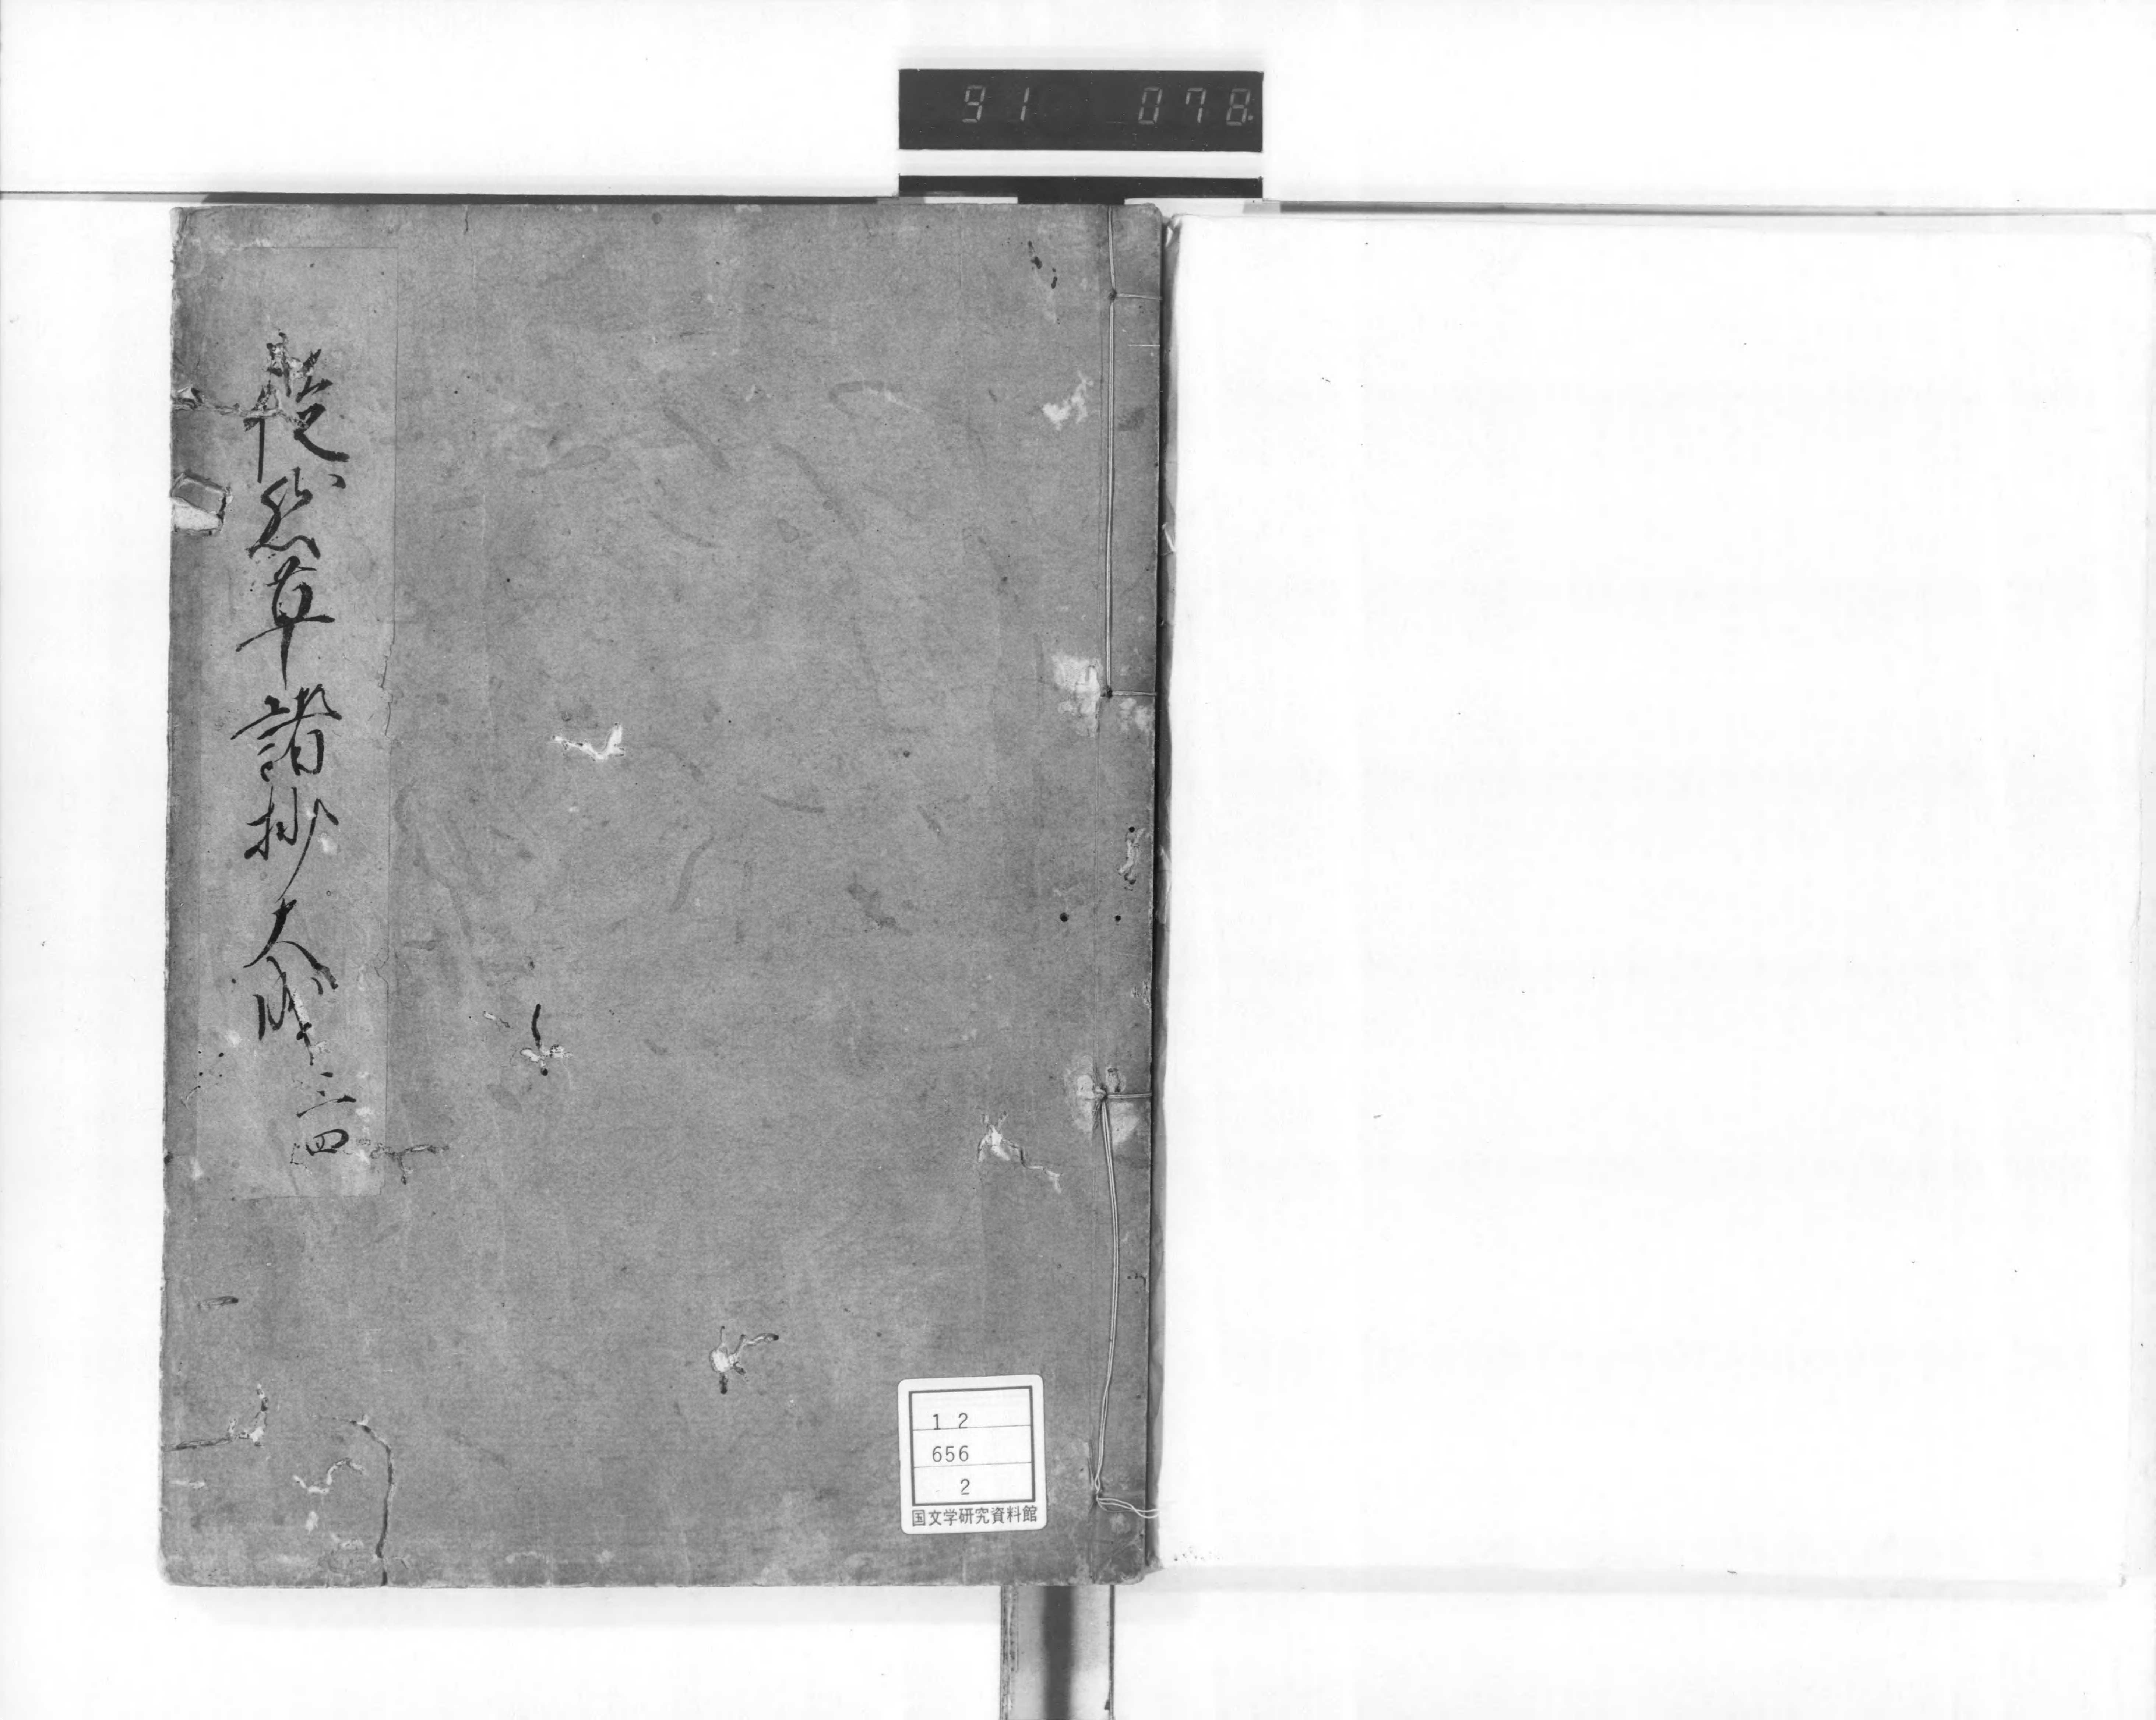 91 078
徒然草諸抄大成 三四
12
656
2
国文学研究資料館